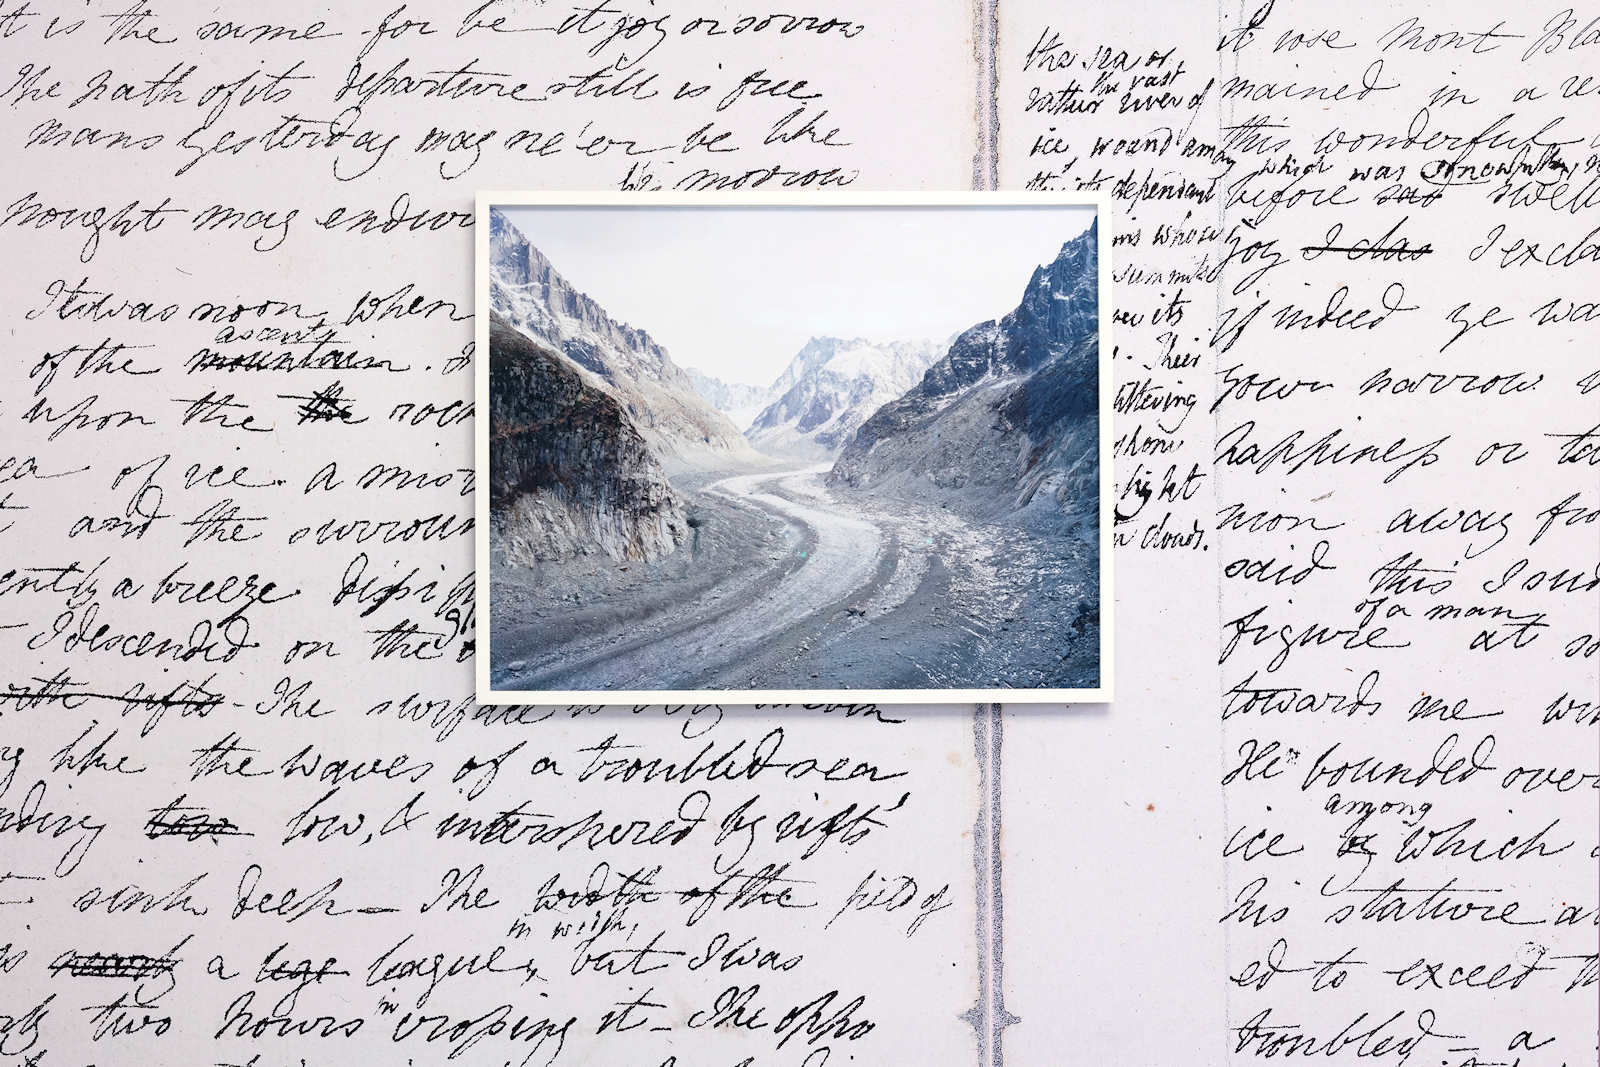 t is the same for be it joy or sorrow
The path of its departure still is free
Mans yesterday may ne'er be like
his morrow
nought may endure
It was noon when
ascent
of the mountain.
upon the the rock
ea of ice. A mist
t and the surroun
ently a breeze dissip
I descended on the gl
with rifts - The surface is very uneven
ng like the waves of a troubled sea
nding low low, & interspersed by rifts
sink deep — The width of the field of
in width,
is nearly a lege league, but I was
in
rly two hours crossing it — The oppo
the sea or
the vast
rather river of
ice, wound among
its dependant
ins whose
summits
over its
. Their
glittering
shone
light
clouds.
it rose Mont Bla
mained in a re
this wonderful
which was
before sad swell
joy I clas I excla
if indeed ye wa
your narrow
happiness or ta
nion away fro
said this I sud
of a man
figure at so
towards me wi
He bounded over
among
ice by which
his stature a
ed to exceed
troubled — a